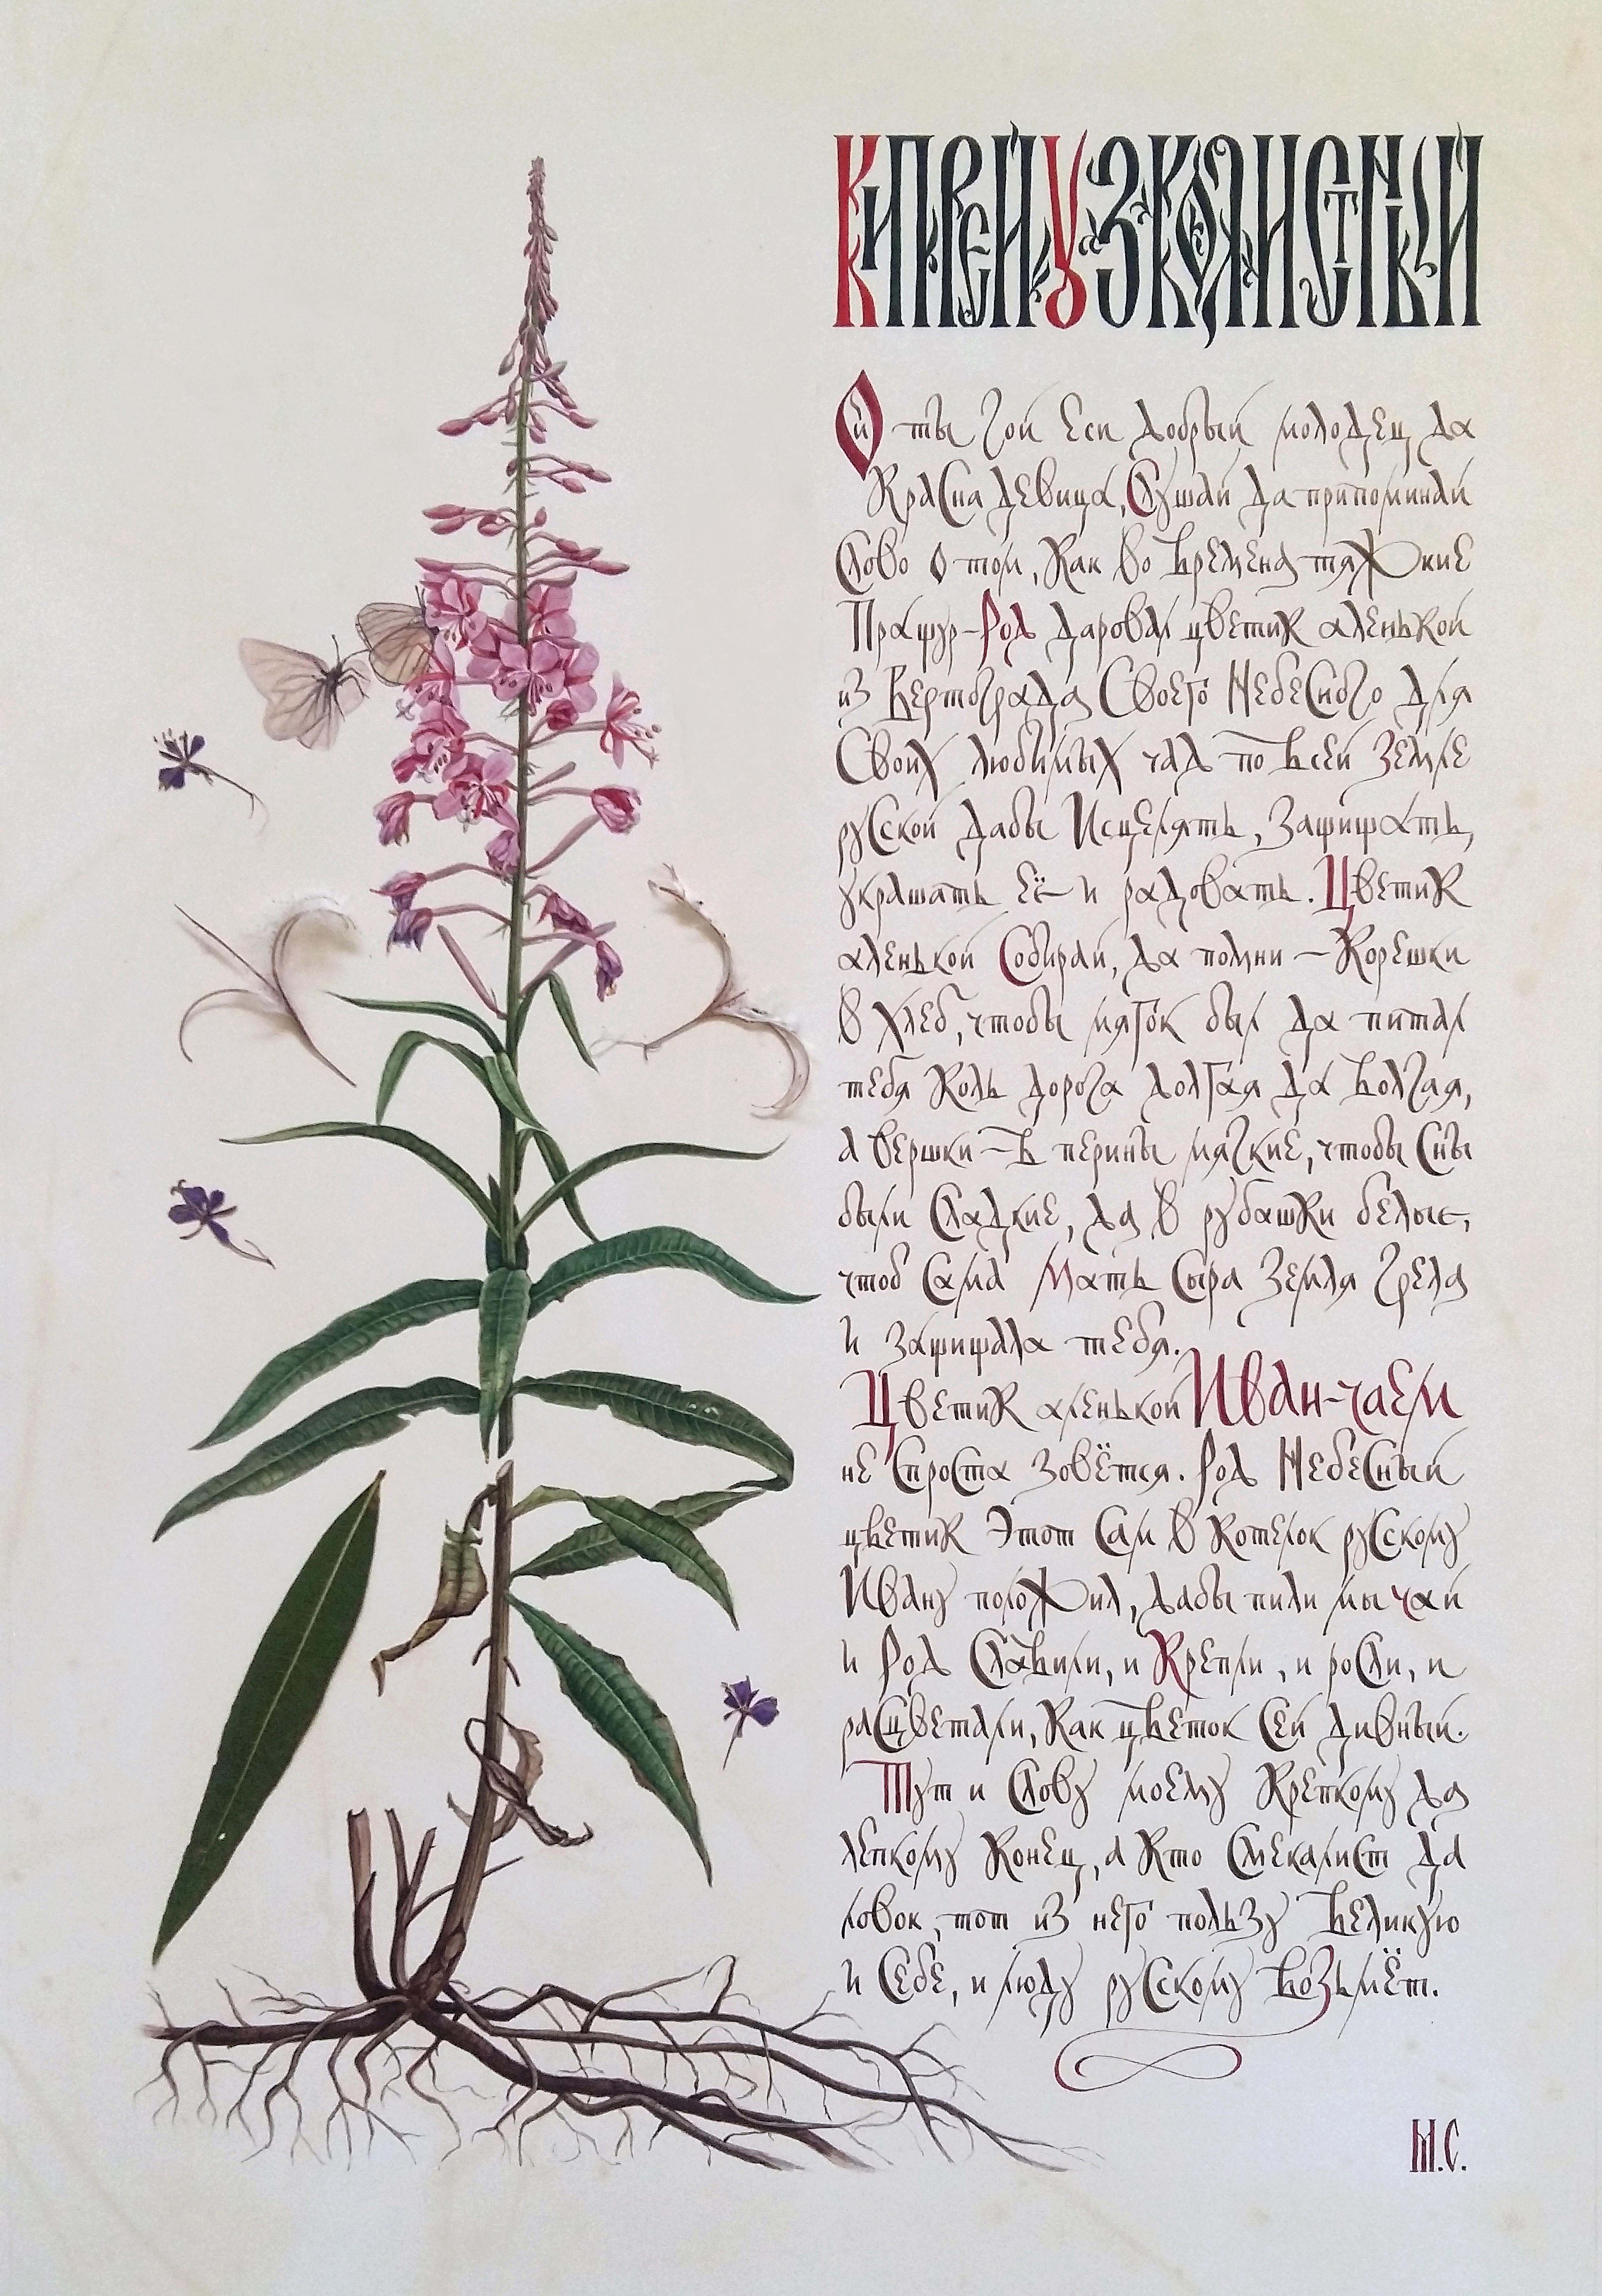 КИПРЕЙ УЗКОЛИСТНЫЙ
Ой ты гой еси добрый молодец да
красна девица, слушай да припоминай
слово о том, как во времена тяжкие
Пращур-Род даровал цветик аленькой
из вертограда Своего Небесного для
Своих любимых чад по всей Земле
русской дабы исцелять, защищать,
украшать её и радовать. Цветик
аленькой собирай, да помни — корешки
в хлеб, чтобы мягок был да питал
тебя коль дорога долгая да волгая,
а вершки — в перины мягкие, чтобы сны
были сладкие, да в рубашки белые,
чтоб сама Мать Сыра Земля грела
и защищала тебя.
Цветик аленькой Иван-чаем
не спроста зовётся. Род Небесный
цветик этот сам в котелок русскому
Ивану положил, дабы пили мы чай
и Род славили, и крепли, и росли, и
расцветали, как цветок сей дивный.
Тут и слову моему крепкому да
лепкому конец, а кто смекалист да
ловок, тот из него пользу великую
и себе, и люду русскому возьмёт.
М.С.